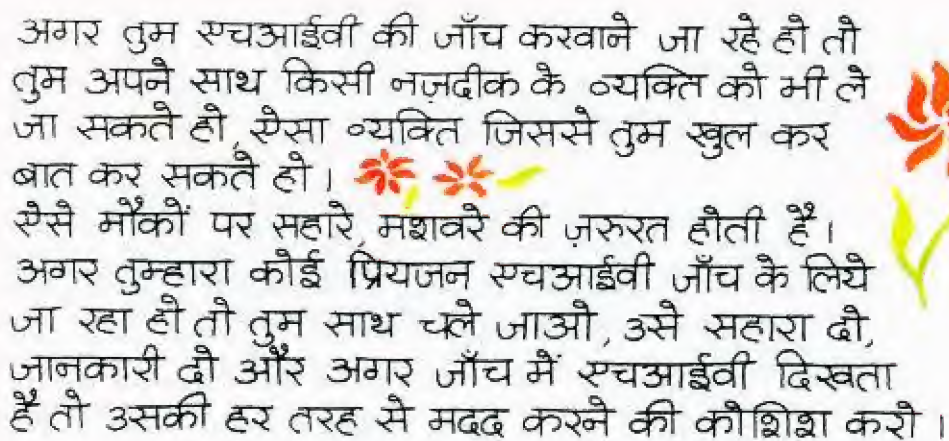 अगर तुम एचआईवी की जाँच करवाने जा रहे हो तो
तुम अपने साथ किसी नज़दीक के व्यक्ति को भी ले
जा सकते हो, ऐसा व्यक्ति जिससे तुम खुल कर
बात कर सकते हो।
ऐसे मौकों पर सहारे, मशवरे की ज़रुरत होती है।
अगर तुम्हारा कोई प्रियजन एचआईवी जाँच के लिये
जा रहा हो तो तुम साथ चले जाओ, उसे सहारा दो,
जानकारी दो और अगर जाँच में एचआईवी दिखता
है तो उसकी हर तरह से मदद करने की कोशिश करो।